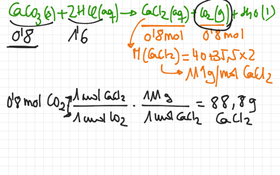 CaCO₃(s) + 2HCl(aq) → CaCl₂(aq) + CO₂(g) + H₂O(l)
0'8 1'6 0'8mol 0'8mol
M(CaCl₂) = 40+35,5×2
111g/mol CaCl₂
0'8 mol CO₂ · 1 mol CaCl₂ / 1 mol CO₂ · 111g / 1 mol CaCl₂ = 88,8g CaCl₂